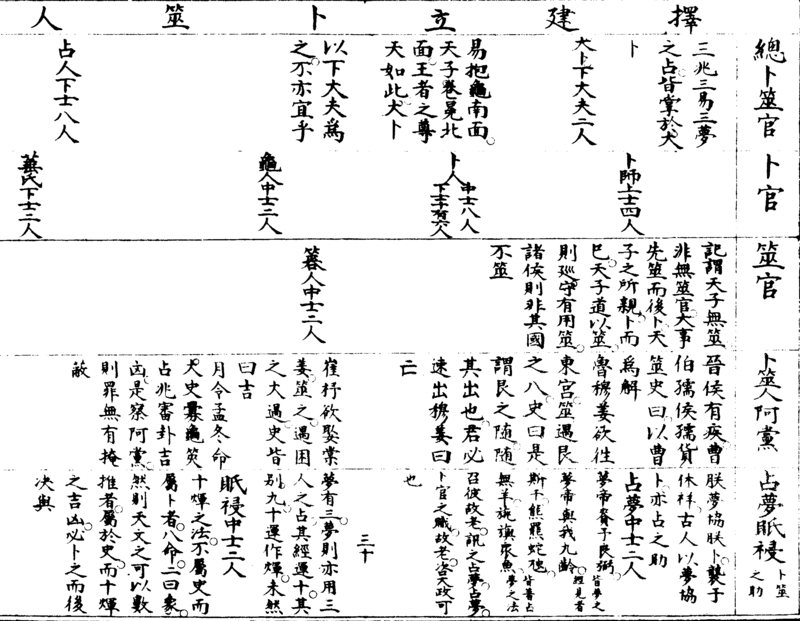 擇建立卜筮人
總卜筮官
三兆三易三夢
之占皆掌於大
卜
大卜下大夫二人
易抱龜南面
天子卷冕北
面王者之尊
天如此大卜
以下大夫為
之不亦宜乎
占人下士八人
卜官
卜師上士四人
卜人中士八人
龜人中士二人
菙氏下士二人
筮官
記謂天子無筮
非無筮官大事
先筮而後卜天
子之所親卜而
已天子道以筮
則廵守有用筮
諸侯則非其國
不筮
簭人中士二人
卜筮人阿黨
晉侯有疾曹
伯孺侯孺貨
筮史曰以曹
為解
魯穆姜欲往
東宮筮遇艮
之八史曰是
謂艮之隨隨
其出也君必
速出穆姜曰
亡
崔杼欲娶棠
姜筮之遇困
之大過史皆
曰吉
月令孟冬命
大史釁龜筴
占兆審卦吉
凶是察阿黨
則罪無有掩
蔽
占夢眡祲
卜筮
之助
朕夢協朕卜襲于
休祥古人以夢協
卜亦占之助
占夢中士二人
夢帝賚予良弼
夢帝與我九齡
斯干熊羆蛇虺
無羊旐旟衆魚
召彼故老訊之占夢占夢
卜官之職故老咨天政可
也
三十
夢有三夢則亦用三
人之占其經運十其
別九十運作煇未然
眡祲中士二人
十煇之法不屬史而
屬卜者八命二曰象
然則天文之可以數
推者屬於史而十煇
之吉凶必卜之而後
决與